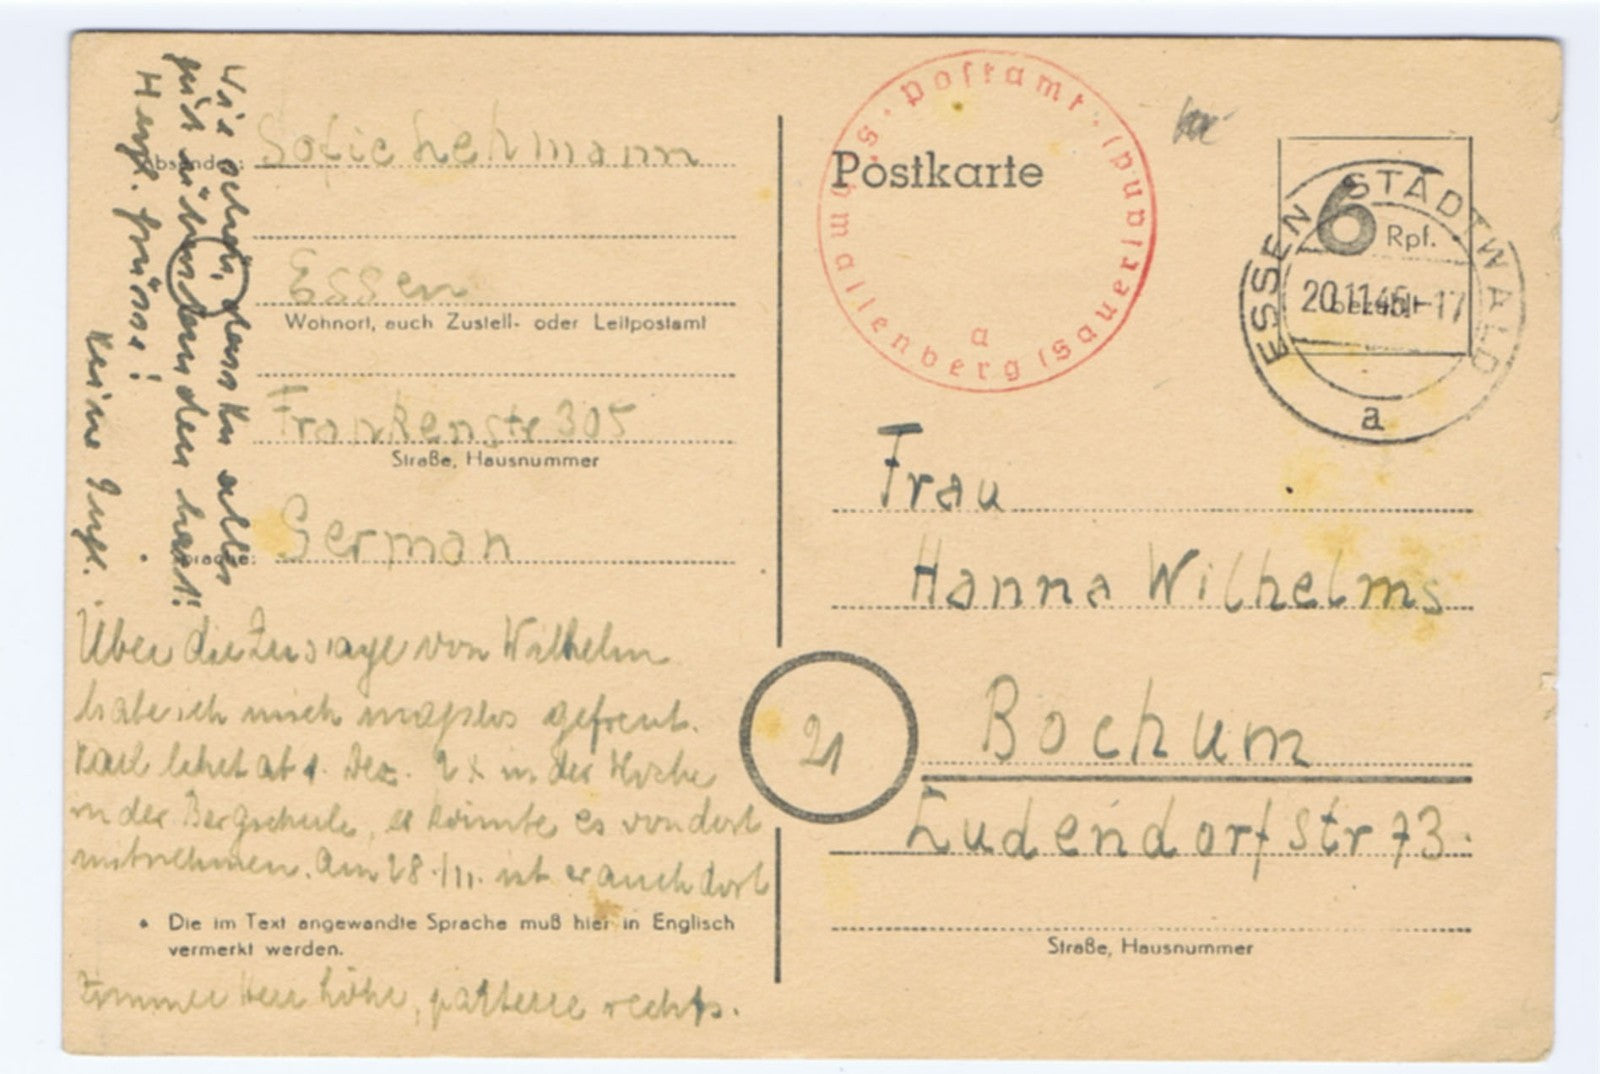 Wie schön, dass Du alles
gut überstanden hast!
Herzl. Grüsse!
Keine
Absender: Sofie Lehmann
Essen
Wohnort, auch Zustell- oder Leitpostamt
Frankenstr 305
Straße, Hausnummer
Sprache: German
Über die Zusage von Wilhelm
habe ich mich masslos gefreut.
Karl lehrt ab 1. Dez. 2 x in der Woche
in der Bergschule, er könnte es von dort
mitnehmen. Am 28./11. ist er auch dort
• Die im Text angewandte Sprache muß hier in Englisch
vermerkt werden.
Zimmer Herr Höhe, parterre rechts.
Postkarte
Postamt
a
6 Rpf.
bezahlt
ESSEN STADTWALD
20.11.45-17
a
Frau
Hanna Wilhelms
21
Bochum
Ludendorfstr 73.
Straße, Hausnummer